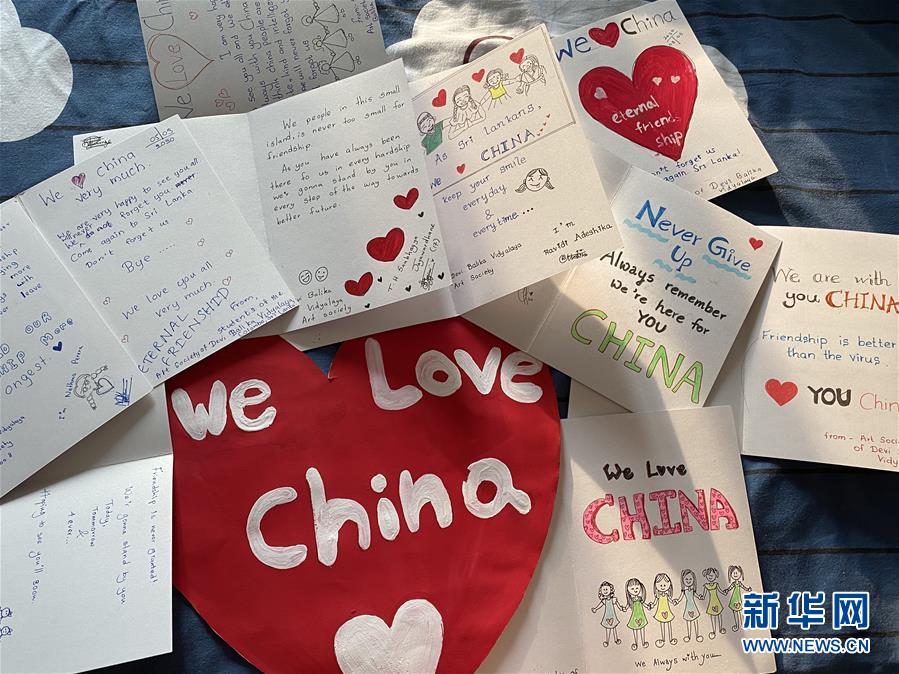 We Love China
I am very hap
see you all and we do
see with you China
think China people are
intelligent
kind and
we will never forget
forget us
We China
eternal
friend
ship
n't forget us
again Sri Lanka!
Devi Balika
Vidyalaya
We people in this small
island, is never too small for
friendship.
As you have always been
there fo us in every hardship
we's gonna stand by you in
every step of the way towards
better future.
Balika
Vidyalaya
Art society
As Sri Lankans,
We CHINA
keep your smile
everyday
&
everytime...
I'm
Ravidi Adeshika
Devi Balika Vidyalaya
Art Society
05/03
2020
We China
very much.
We are very happy to see you all
we do not forget you never
Come again to Sri Lanka.
Don't forget us
Bye
We love you all
very much
ETERNAL
FRIENSHIP
From
students of the
Art Society of Devi Balika Vidyalaya
ongest
Never Give
Up
Always remember
We're here for
YOU
CHINA
We are with
you CHINA
Friendship is better
than the virus.
YOU China
from - Art Soci
of Devi
Vidy
We Love
China
We Love
CHINA
We Always with you
Friendship is never granted!
We'r gonna stand by you
Today,
Tommorow
&
4 ever...
Hoping to see you'll soon.
新华网
WWW.NEWS.CN